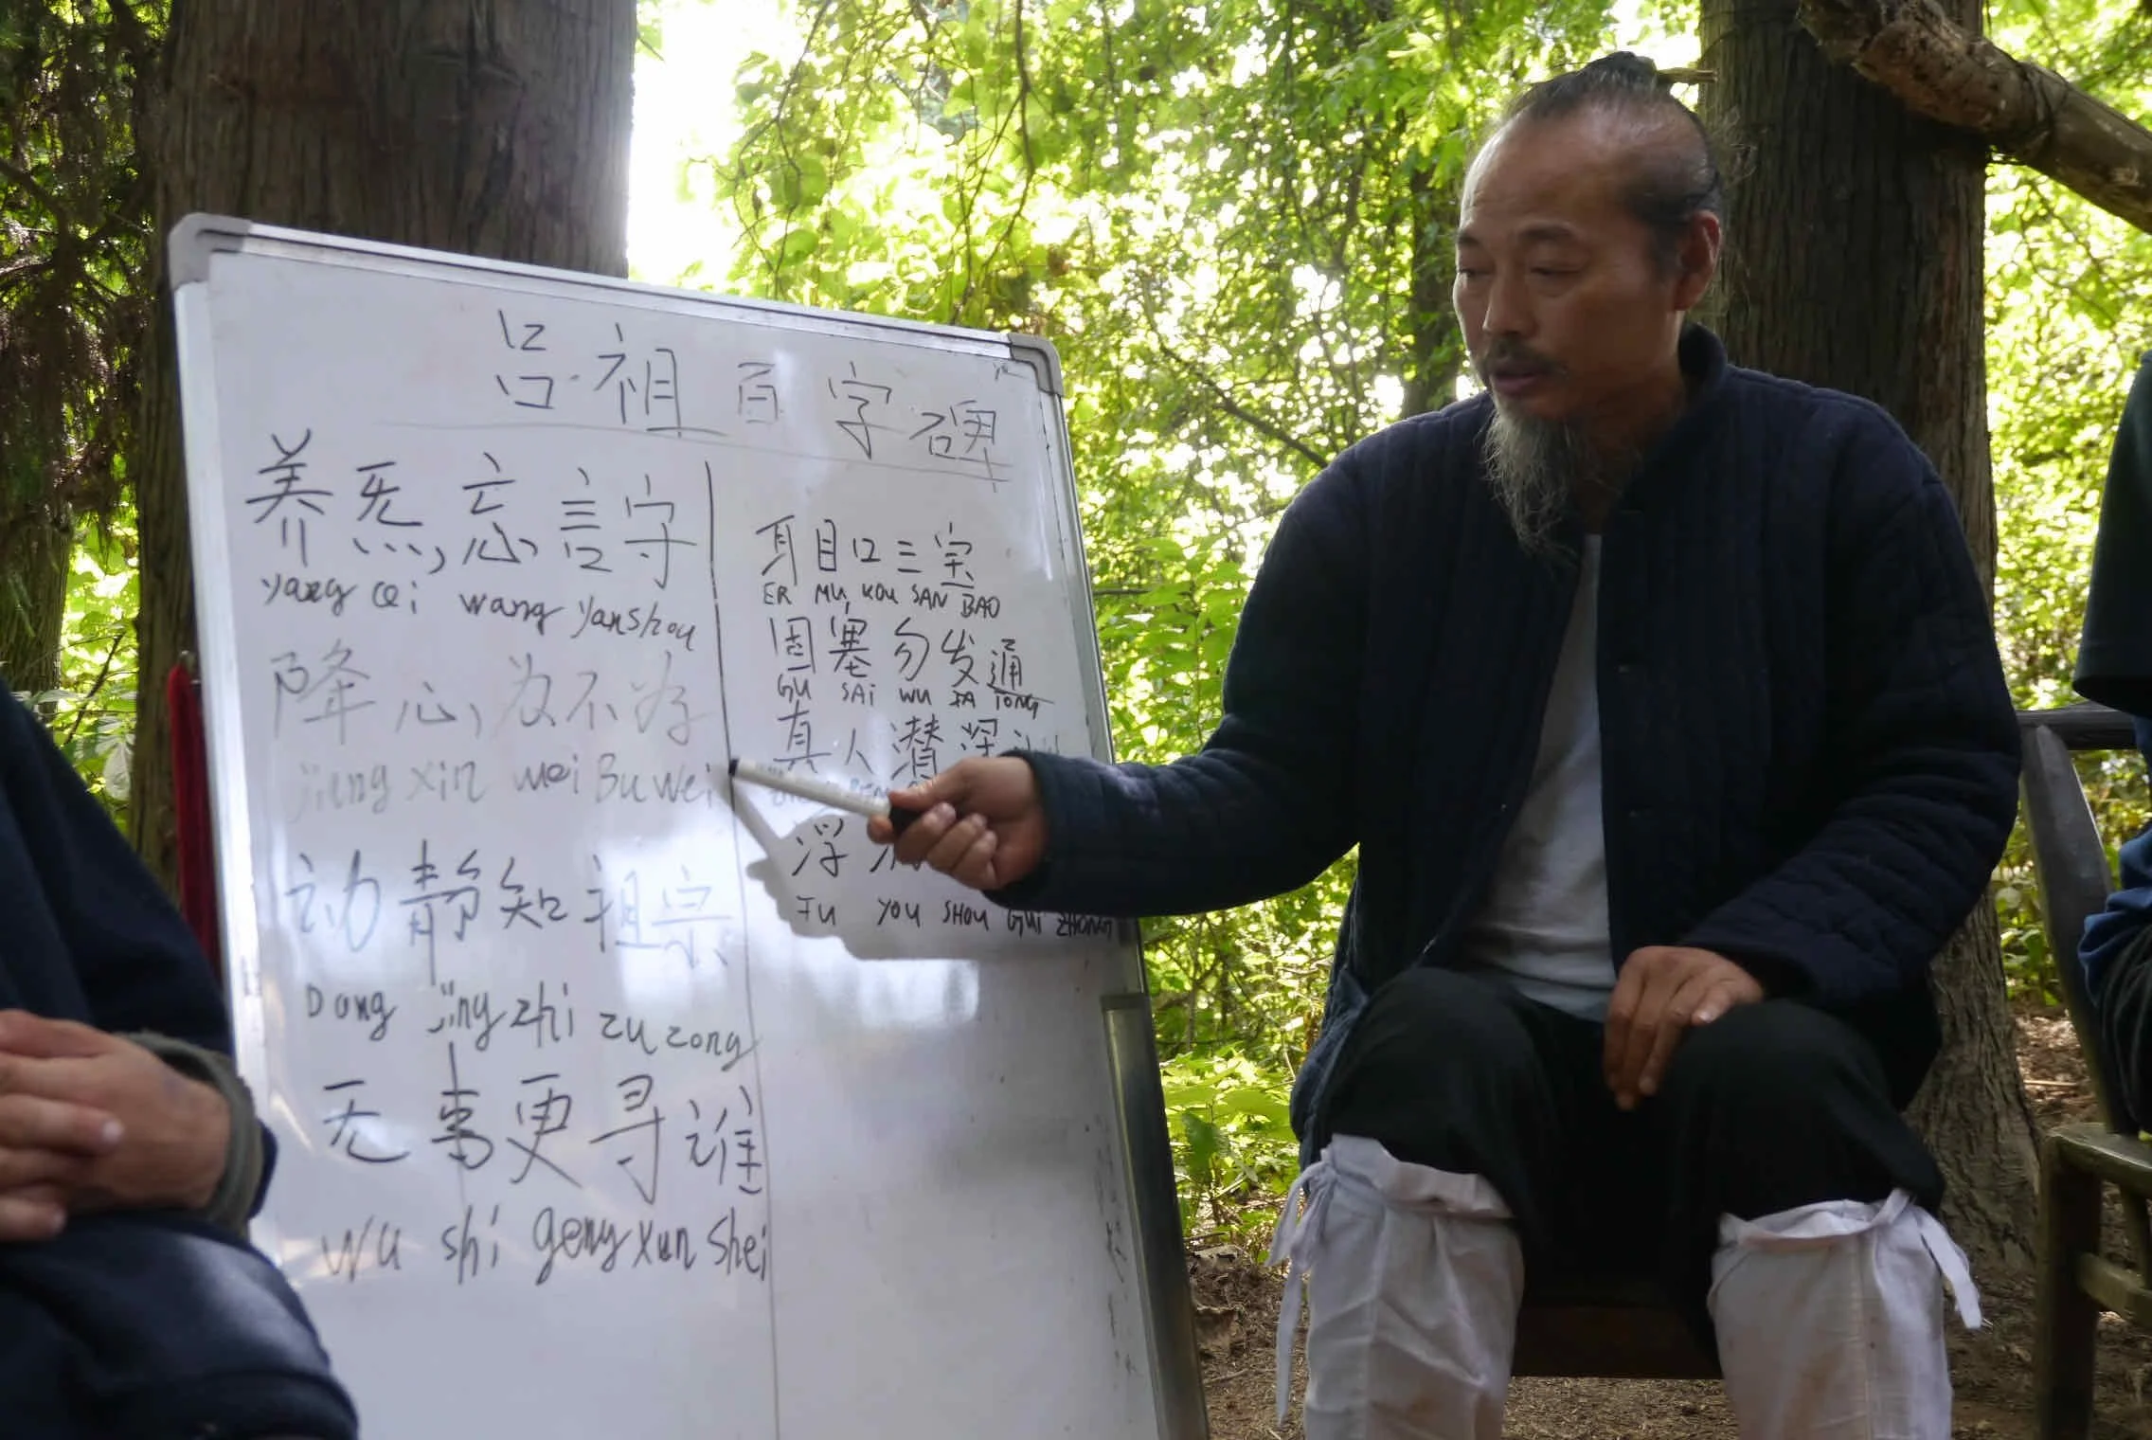 吕祖百字碑
养炁,忘言守
yang qi wang yanshou
降心,为不为
jiang xin wei Bu wei
动静知祖宗
Dong jing zhi zu zong
无事更寻谁
wu shi geng xun shei
耳目口三宝
ER MU, KOU SAN BAO
固塞勿发通
GU SAi WU FA TONG
真人潜深
浮
FU YOU SHOU GUi ZHONG